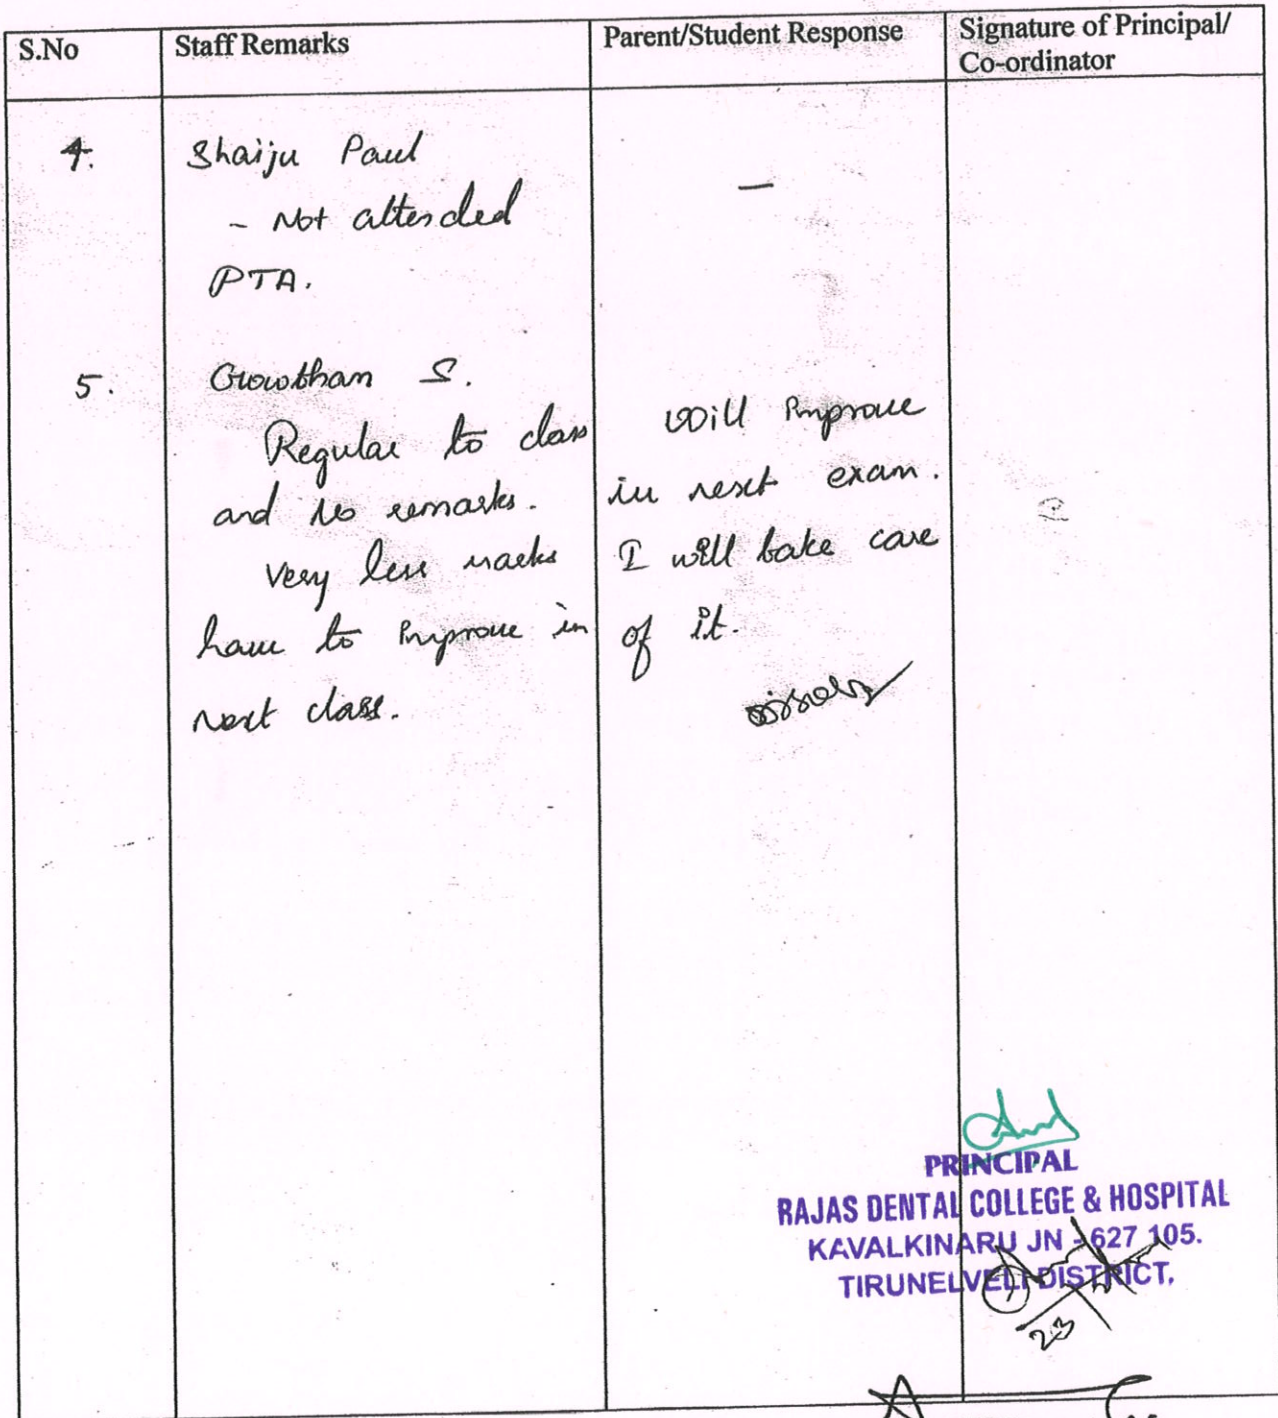 S.No Staff Remarks Parent/Student Response Signature of Principal/
Co-ordinator
4. Shaiju Paul
- Not attended
PTA.
—
5. Gowtham S.
Regular to class
and no remarks.
Very less marks
have to improve in
next class.
Will improve
in next exam.
I will take care
of it.
PRINCIPAL
RAJAS DENTAL COLLEGE & HOSPITAL
KAVALKINARU JN - 627 105.
TIRUNELVELI DISTRICT.
23